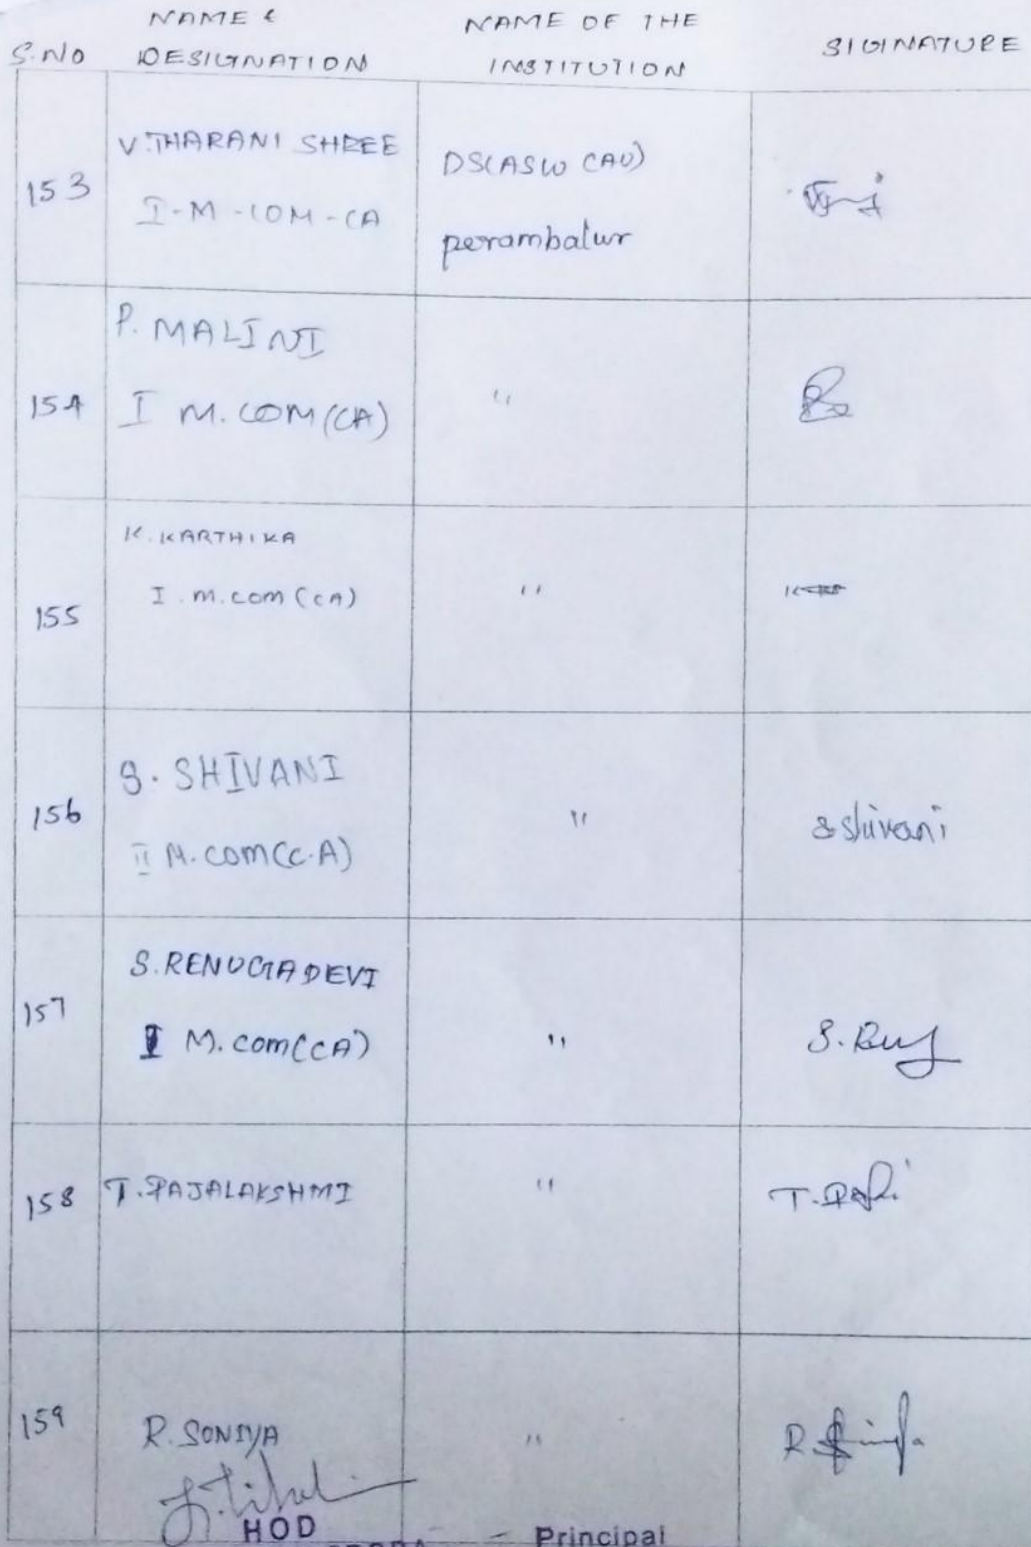 S.NO NAME & DESIGNATION NAME OF THE INSTITUTION SIGINATURE
153 V.THARANI SHREE DS(ASW CAU)
I-M-COM-CA perambalur
154 P. MALINI "
I M.COM (CA)
155 K. KARTHIKA "
I.M.COM (CA)
156 S. SHIVANI " S shivani
II M.COM(C.A)
157 S.RENUGADEVI "
I M.COM(CA) S.
158 T.RAJALAKSHMI " T.
159 R.SONIYA " R
HOD Principal